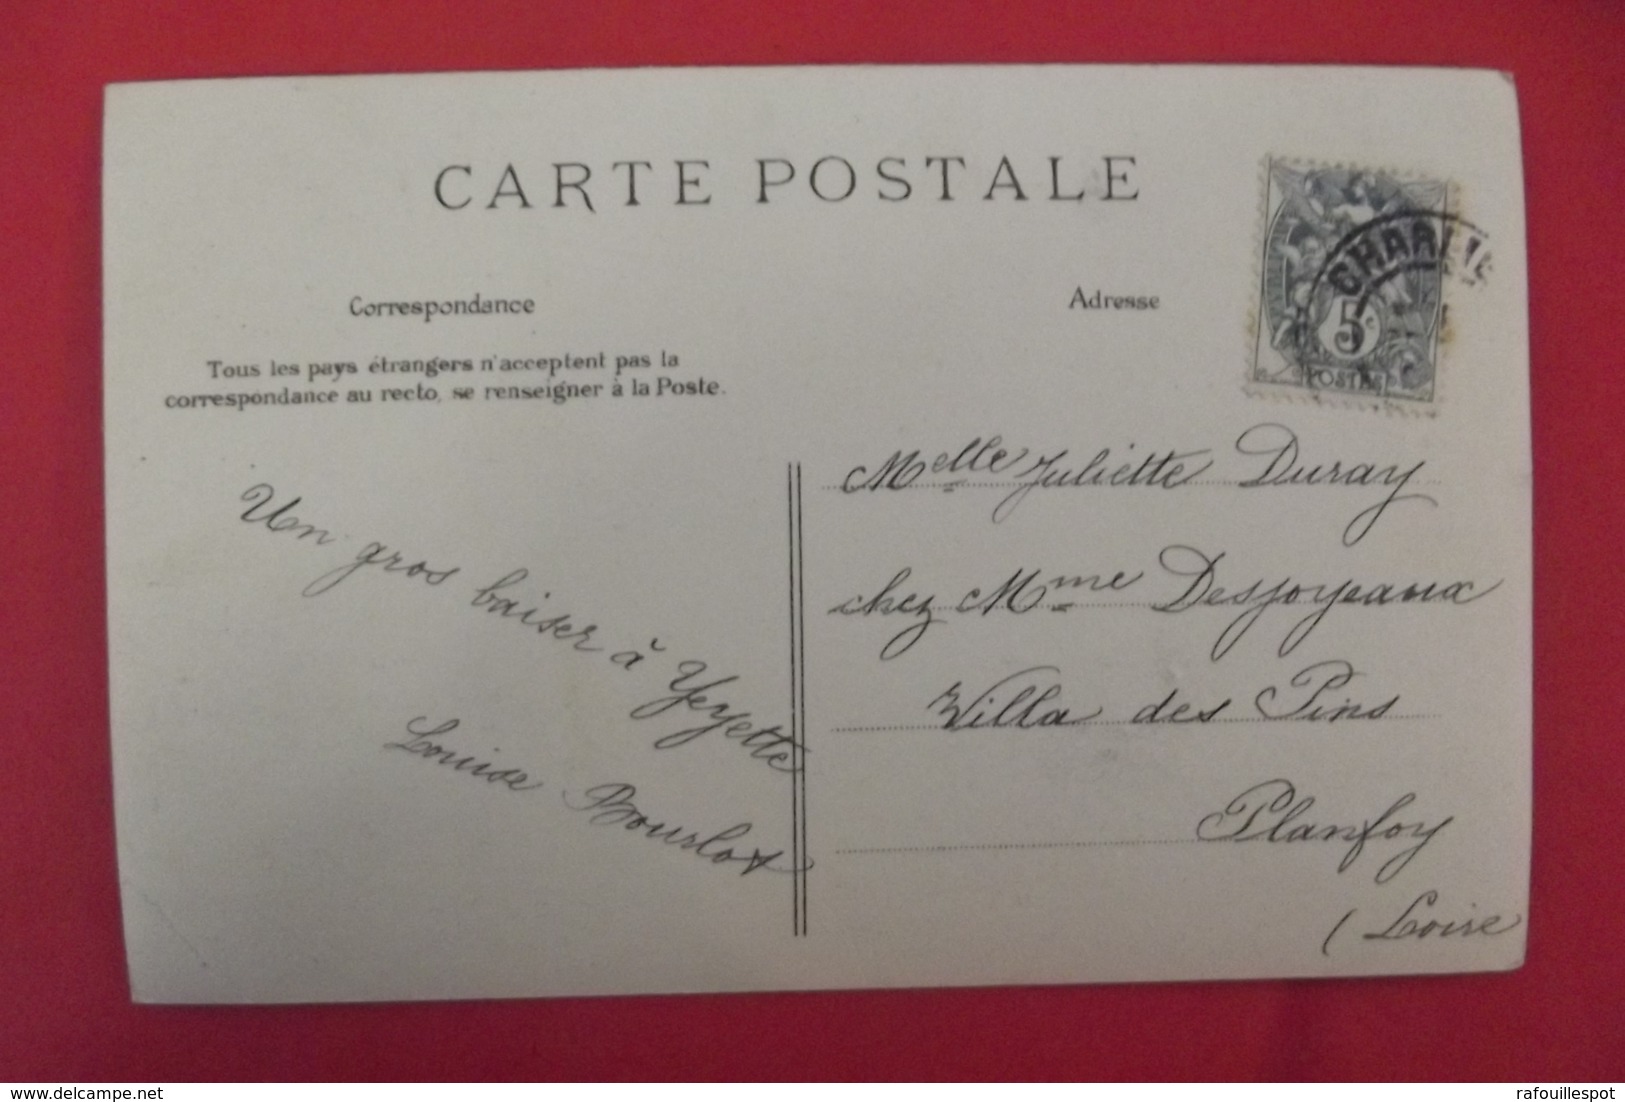 CARTE POSTALE
Correspondance
Tous les pays étrangers n'acceptent pas la
correspondance au recto, se renseigner à la Poste.
Un gros baiser à Yeyette
Louise Bourlot
Adresse
5c
POSTES
Melle Juliette Duray
chez Mme Desjoyeaux
Villa des Pins
Planfoy
(Loire
delcampe.net
rafouillespot